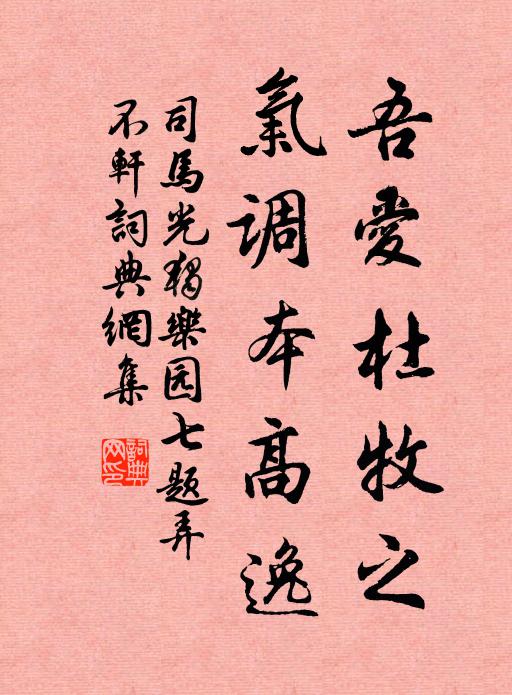 吾愛杜牧之
氣调本高逸
司馬光獨樂园七题弄
不軒詞典網集
詞典網印